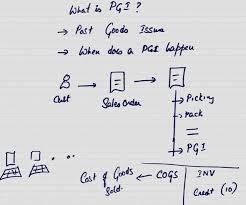 What is PGI ?
→ Post Goods Issue
→ When does a PGI happen
Cust → Sales Order →
Picking
Pack
PGI
Cost of Goods Sold. ← COGS | INV
Credit (10)